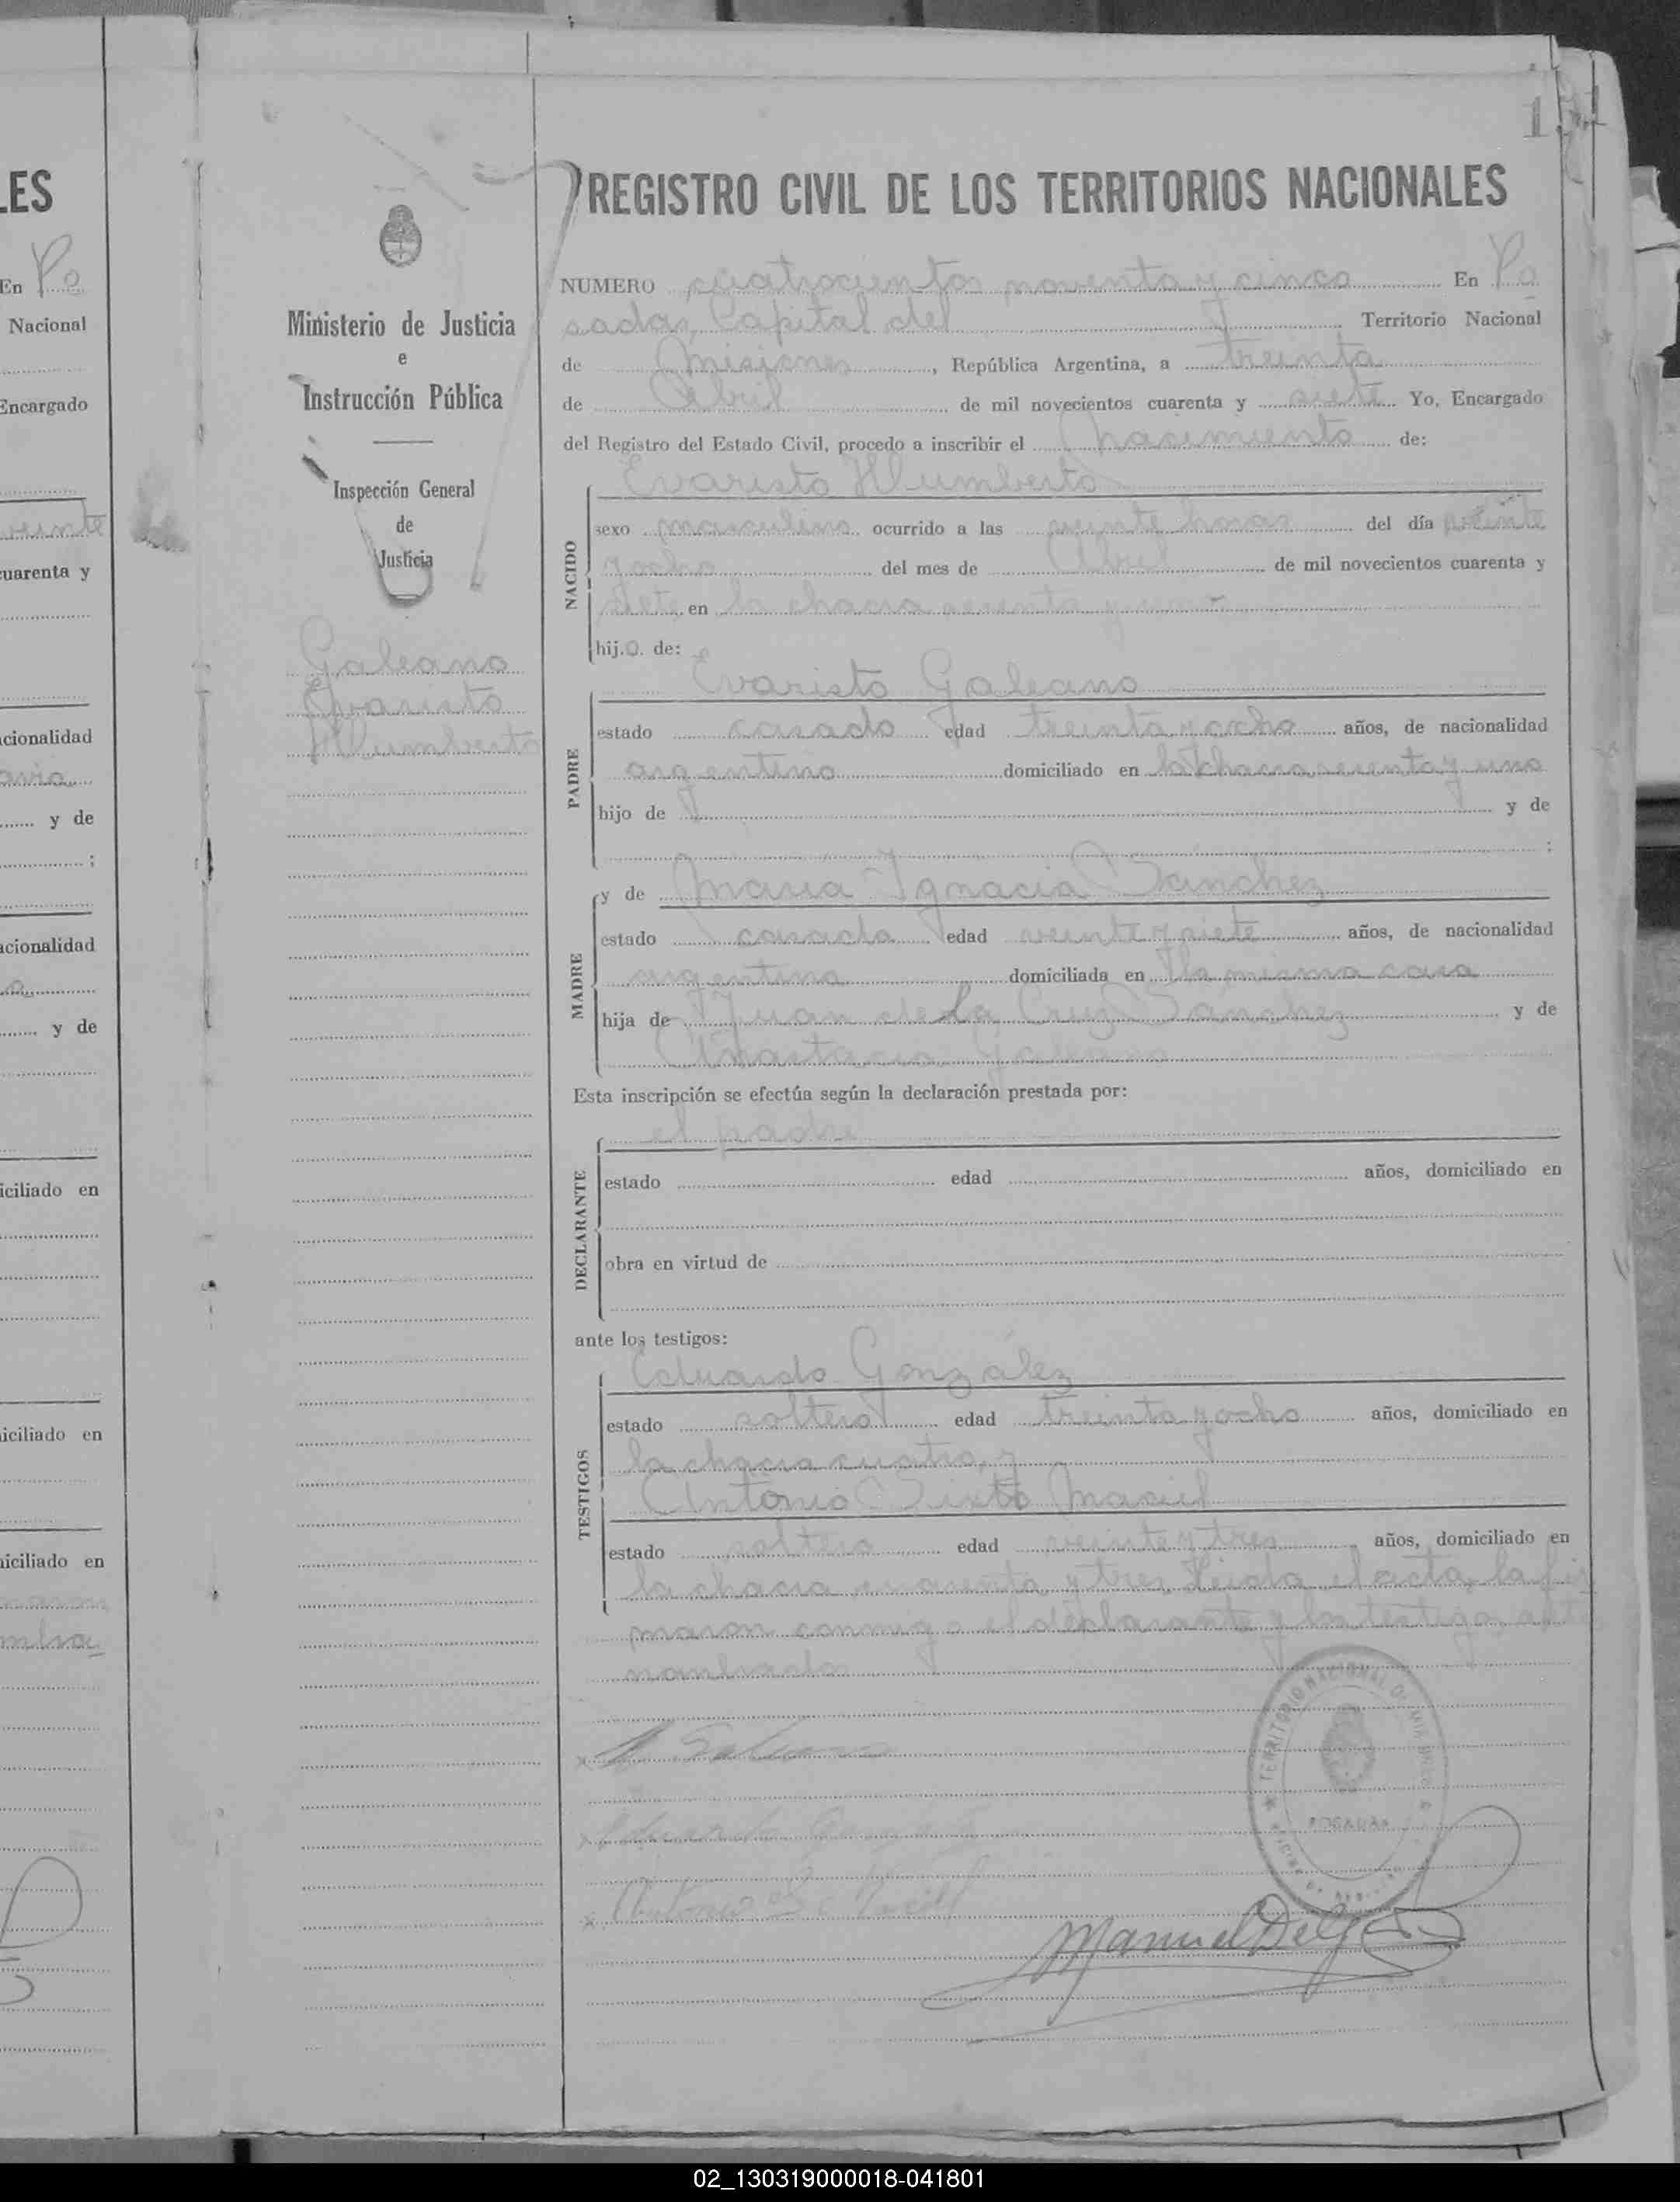 LES
En Po
Nacional
Encargado
veinte
cuarenta y
acionalidad
y de
;
acionalidad
y de
iciliado en
iciliado en
iciliado en
151
Ministerio de Justicia
e
Instrucción Pública
Inspección General
de
Justicia
Galeano
Evaristo
Humberto
REGISTRO CIVIL DE LOS TERRITORIOS NACIONALES
NUMERO cuatrocientos noventa y cinco En Po
sadas, Capital del Territorio Nacional
de Misiones, República Argentina, a treinta
de Abril de mil novecientos cuarenta y siete Yo, Encargado
del Registro del Estado Civil, procedo a inscribir el nacimiento de:
Evaristo Humberto
NACIDO
sexo masculino ocurrido a las veinte horas del día veinte
y ocho del mes de Abril de mil novecientos cuarenta y
siete en la chacra sesenta y una
hijo. de:
Evaristo Galeano
PADRE
estado casado edad treinta y ocho años, de nacionalidad
argentino domiciliado en la chacra sesenta y una
hijo de y de
;
y de Maria Ignacia Sánchez
MADRE
estado casada edad veinte y siete años, de nacionalidad
argentina domiciliada en la misma casa
hija de Juan de la Cruz Sánchez y de
Esta inscripción se efectúa según la declaración prestada por:
el padre
DECLARANTE
estado edad años, domiciliado en
obra en virtud de
ante los testigos:
Eduardo González
TESTIGOS
estado soltero edad treinta y ocho años, domiciliado en
la chacra cuatro, y
Antonio Sixto Maciel
estado soltero edad veinte y tres años, domiciliado en
la chacra cuarenta y tres. Leída el acta, la fir
maron conmigo el declarante y los testigos
nombrados
TERRITORIO NACIONAL DE MISIONES
POSADAS
Manuel Delg
02_130319000018-041801